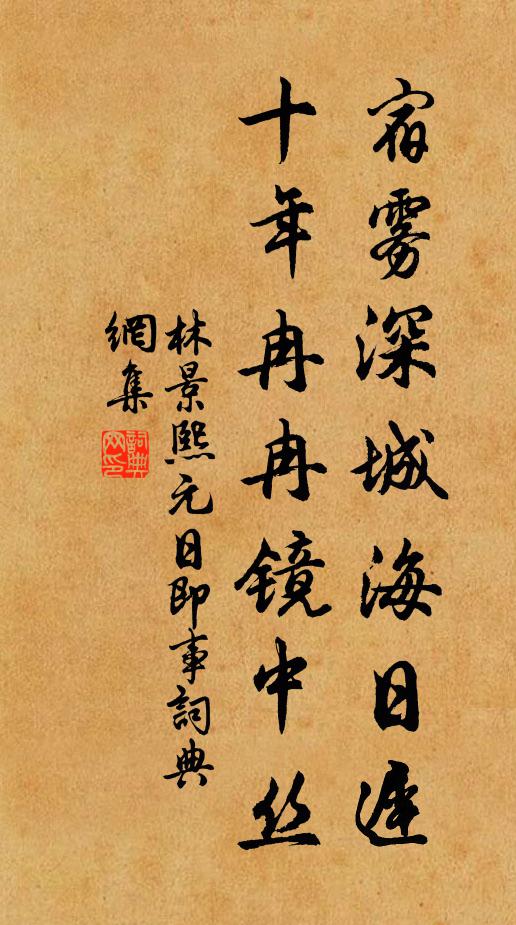 宿雾深城海日遲
十年冉冉镜中丝
林景熙元日即事詞典
網集
詞典网印